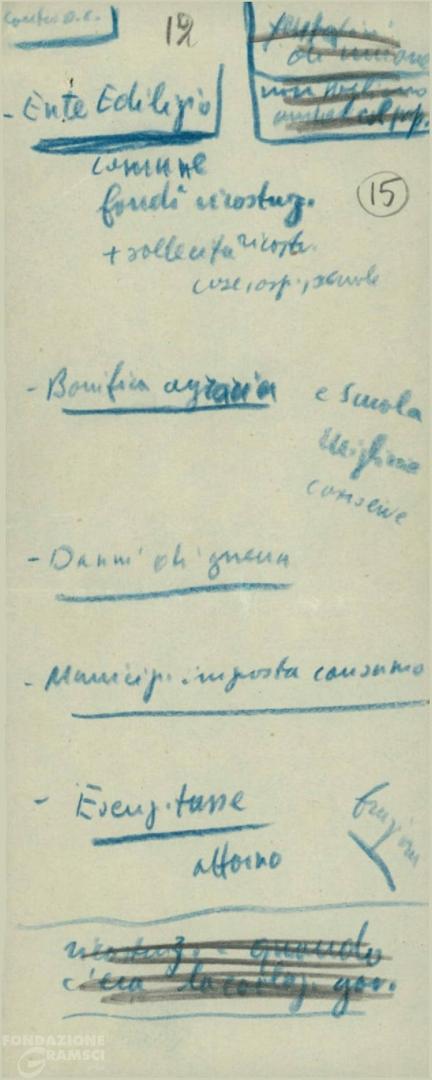 contro D.C.
12
di unione
- Ente Edilizio
comune
fondi ricostruz.
15
+ sollecita ricostr.
case, osp., scuole
- Bonifica agraria
e scuola
conserve
- Danni di guerra
- Municip. imposta consumo
- Esenz. tasse
attorno
ricostruz. - quando
c'era la collaz. gov.
FONDAZIONE
GRAMSCI